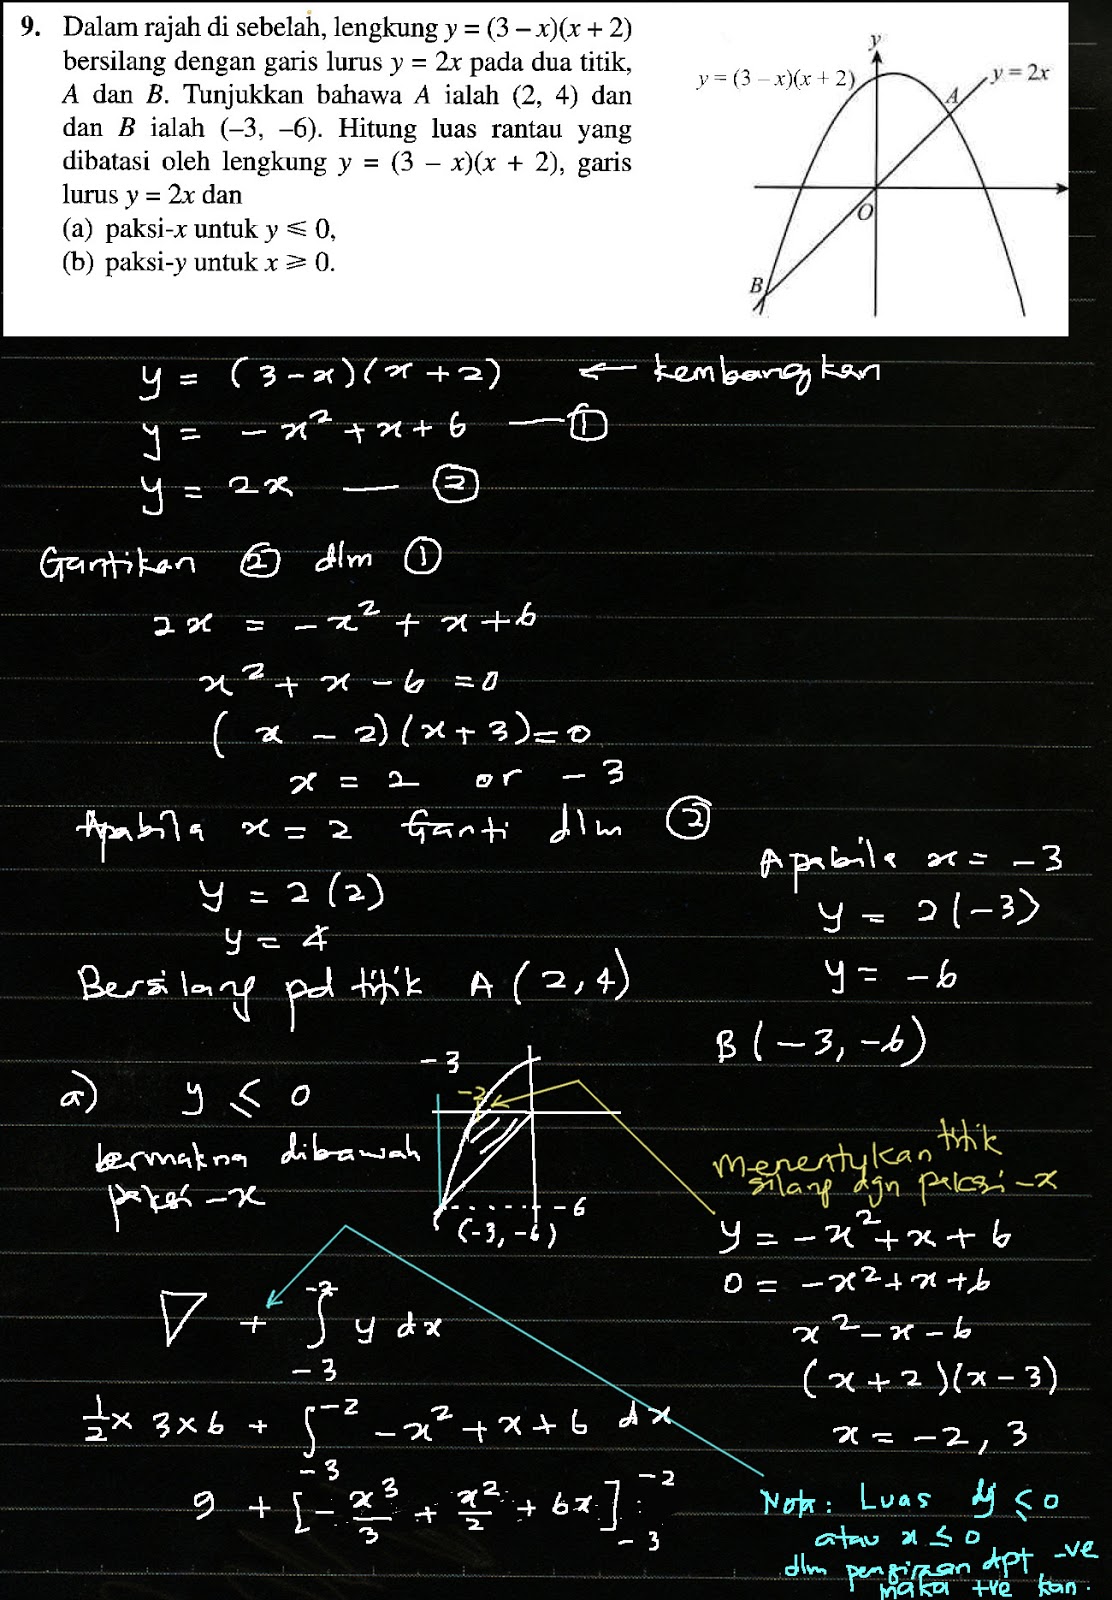 9. Dalam rajah di sebelah, lengkung y = (3 – x)(x + 2)
bersilang dengan garis lurus y = 2x pada dua titik,
A dan B. Tunjukkan bahawa A ialah (2, 4) dan
dan B ialah (–3, –6). Hitung luas rantau yang
dibatasi oleh lengkung y = (3 – x)(x + 2), garis
lurus y = 2x dan
(a) paksi-x untuk y ⩽ 0,
(b) paksi-y untuk x ⩾ 0.
y
y = (3 – x)(x + 2)
y = 2x
A
O
B
y = (3-x)(x+2) ← kembangkan
y = -x² + x + 6 — ①
y = 2x — ②
Gantikan ② dlm ①
2x = -x² + x + 6
x² + x - 6 = 0
(x - 2)(x + 3) = 0
x = 2 or -3
Apabila x = 2 Ganti dlm ②
y = 2(2)
y = 4
Bersilang pd titik A (2, 4)
Apabila x = -3
y = 2(-3)
y = -6
B (-3, -6)
a) y ⩽ 0
bermakna dibawah
paksi-x
-3
-2
-6
(-3, -6)
Menentukan titik
silang dgn paksi-x
y = -x² + x + 6
0 = -x² + x + 6
x² - x - 6
(x + 2)(x - 3)
x = -2, 3
▽ + ∫₋₃⁻² y dx
½ × 3 × 6 + ∫₋₃⁻² -x² + x + 6 dx
9 + [-x³/3 + x²/2 + 6x]₋₃⁻²
Nota: Luas y ⩽ 0
atau x ⩽ 0
dlm pengiraan dpt -ve
maka +ve kan.